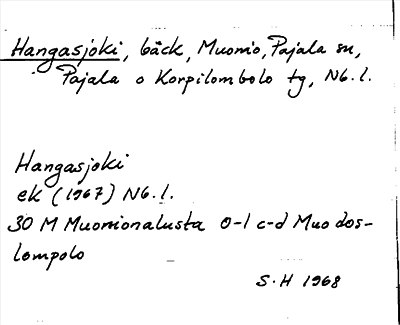 Hangasjoki, bäck, Muonio, Pajala sn,
Pajala o Korpilombolo tg, Nb.l.
Hangasjoki
ek (1967) Nb.l.
30 M Muonionalusta 0-1 c-d Muodos-
lompolo
S.H 1968